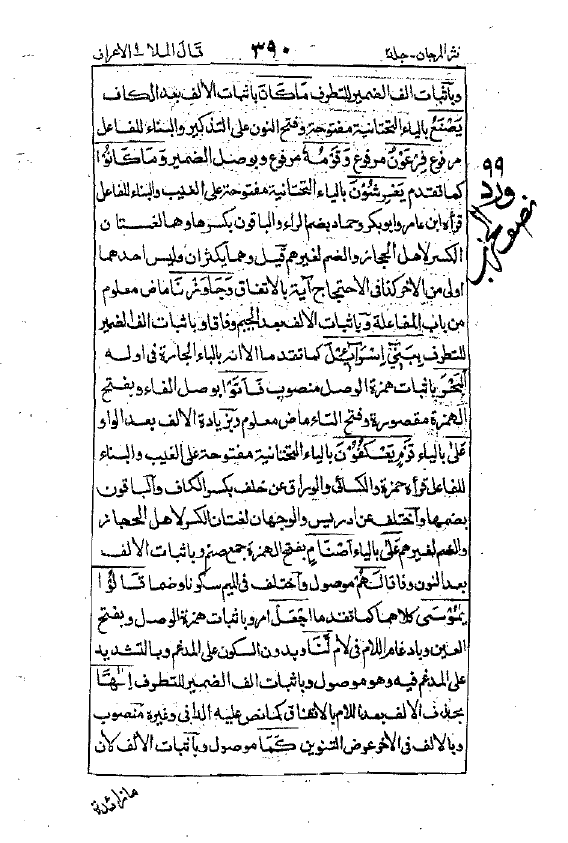 نثر المرجان - جلد٢ ٣٩٠ قال الملا ٩ الاعراف
وباثبات الف الضمير للتطرف مَا كَانَ باثبات الالف بعد الكاف
يَصْنَعُ بالياء التحتانية مفتوحة وفتح النون على التذكير والبناء للفاعل
مرفوع فِرْعَوْنُ مرفوع وَقَوْمُهٗ مرفوع وبوصل الضمير وَمَا كَانُوْا
كما تقدم يَعْرِشُوْنَ بالياء التحتانية مفتوحة على الغيب والبناء للفاعل
قرأه ابن عامر وابوبكر وحماد بضم الراء والباقون بكسرها وهما لغستان
الكسر لاهل الحجاز والضم لغيرهم قيل وهما يكثران وليس احدهما
اولى من الآخر كذا فى الاحتجاج آية بالاتفاق وَجَاوَزْنَا ماض معلوم
من باب المفاعلة وباثبات الالف بعد الجيم وفاقا وباثبات الف الضمير
للتطرف بِبَنِيْ اِسْرَآءِيْلَ كما تقدما الا انه بالباء الجارة فى اوله
الْبَحْرَ باثبات همزة الوصل منصوب فَاَتَوْا بوصل الفاء وبفتح
الهمزة مقصورة وفتح التاء ماض معلوم وبزيادة الالف بعد الواو
عَلٰى بالياء قَوْمٍ يَعْكُفُوْنَ بالياء التحتانية مفتوحة على الغيب والبناء
للفاعل قرأه حمزة والكسائى والوراق عن خلف بكسر الكاف والباقون
بضمها واختلف عن ادريس والوجهان لغتان الكسر لاهل الحجاز
والضم لغيرهم عَلٰى بالياء اَصْنَامٍ بفتح الهمزة جمع صنم وباثبات الالف
بعد النون وفاقا لَهُمْ موصول واختلف فى الميم سكونا وضما قَالُوْا
يٰمُوْسَى كلاهما كما تقدما اجْعَلْ امر وباثبات همزة الوصل وبفتح
العين وبادغام اللام فى لام لَّنَا وبدون السكون على المدغم وبالتشديد
على المدغم فيه وهو موصول وباثبات الف الضمير للتطرف اِلٰهًا
بحذف الالف بعد اللام بالاتفاق كما نص عليه الدانى وغيره منصوب
وبالالف فى الآخر عوض التنوين كَمَا موصول وباثبات الالف لان
ما زائدة
٩٩
ورد
نصف الحزب